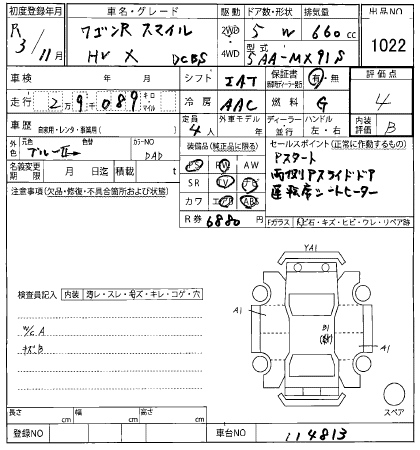 初度登録年月 車名・グレード 駆動 ドア数・形状 排気量 出品NO
R 3/11月 ワゴンR スマイル 2WD 5 W 660 cc 1022
HV X DCBS 4WD 型式 5AA-MX91S
車検 年 月 シフト IAT 保証書 有・無 評価点
走行 2万9千089 キロ マイル 冷房 AAC 燃料 G 4
車歴 自家用・レンタ・事業用( ) 定員 4人 外車モデル 年 ディーラー・並行 ハンドル 左・右 内装評価 B
外色 元色 ブルーII→ 色替 カラーNO DAD 装備品(純正品に限る) セールスポイント(正常に作動するもの)
名義変更期限 月 日迄 積載 t PS PW AW Pスタート
注意事項(欠品・修復・不具合箇所および状態) SR TV ナビ 両側Pスライドドア
カワ エアB ABS 運転席シートヒーター
R券 6880 円 Fガラス 飛石・キズ・ヒビ・ワレ・リペア跡
YA1
検査員記入 内装 薄レ・スレ・キズ・キレ・コゲ・穴
A1 A1
W/C A B1
キズB
スペア
長さ cm 幅 cm 高さ cm
登録NO 車台NO 114813